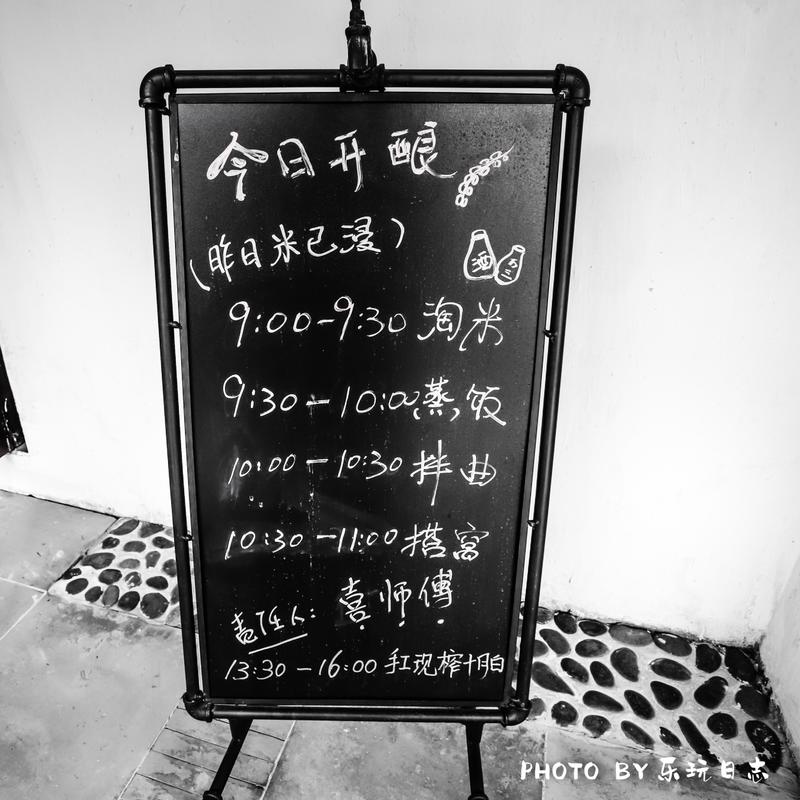 今日开酿
(昨日米已浸)
酒
万三
9:00-9:30 淘米
9:30-10:00 蒸饭
10:00-10:30 拌曲
10:30-11:00 搭窝
责任人: 喜师傅
13:30-16:00 手工现榨十月白
PHOTO BY 乐玩日志